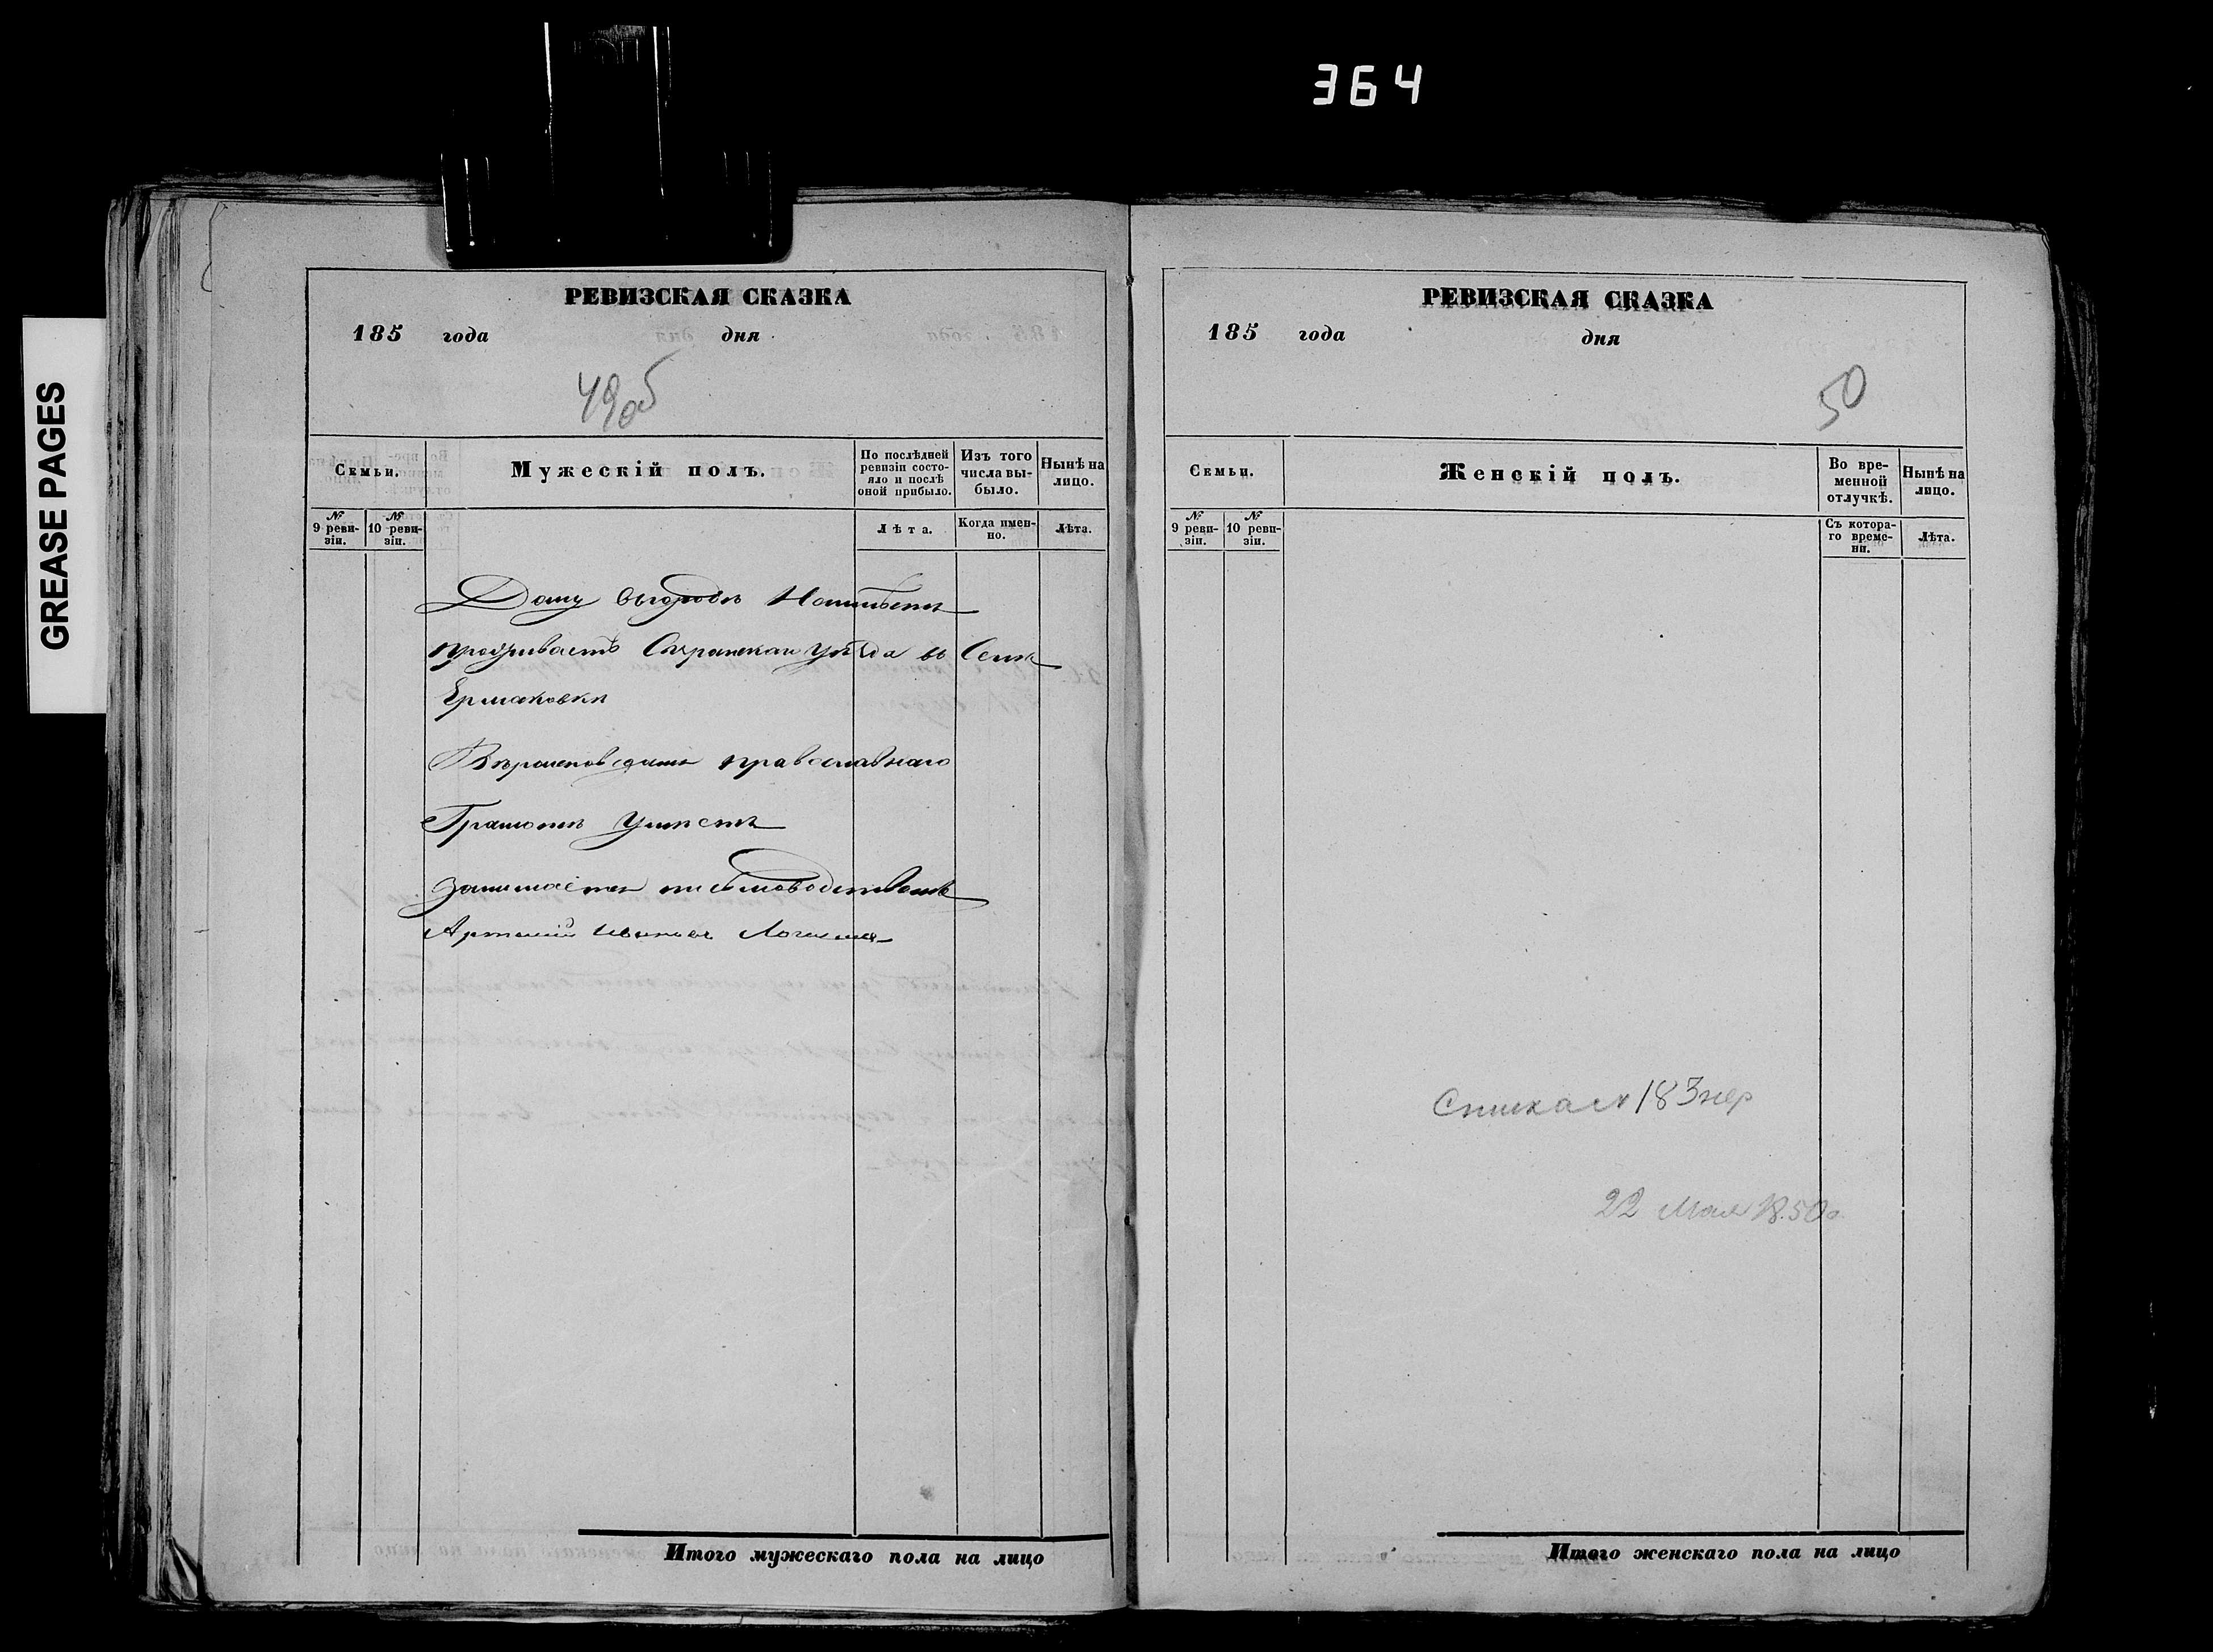 364
GREASE PAGES
РЕВИЗСКАЯ СКАЗКА
185 года дня
49об
Семьи.
Мужескій полъ.
По послѣдней ревизіи состояло и послѣ оной прибыло.
Изъ того числа выбыло.
Нынѣ на лицо.
№ 9 ревизіи.
№ 10 ревизіи.
Лѣта.
Когда именно.
Лѣта.
Дому въ городѣ Неимѣетъ
проживаетъ Сызранскаго уѣзда въ Селѣ
Ермаковкѣ
Вѣроисповѣданія православнаго
Грамотѣ умѣетъ
занимается письмоводствомъ
Артемій Ивановъ
Итого мужескаго пола на лицо
РЕВИЗСКАЯ СКАЗКА
185 года дня
50
Семьи.
Женскій полъ.
Во временной отлучкѣ.
Нынѣ на лицо.
№ 9 ревизіи.
№ 10 ревизіи.
Съ котораго времени.
Лѣта.
183
22 Мая 1850г
Итого женскаго пола на лицо